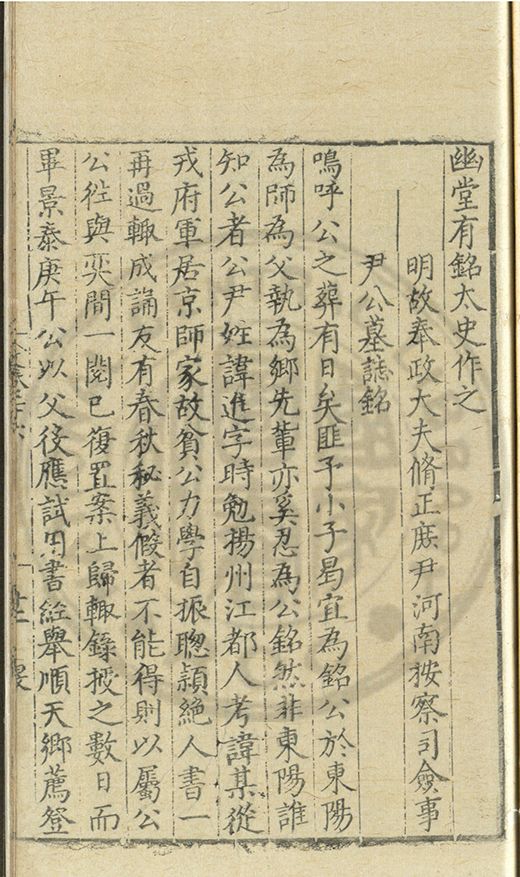 幽堂有銘太史作之
明故奉政大夫脩正庶尹河南按察司僉事
尹公墓誌銘
嗚呼公之葬有日矣匪予小子曷宜為銘公於東陽
為師為父執為鄉先輩亦奚忍為公銘然非東陽誰
知公者公尹姓諱進字時勉揚州江都人考諱某從
戎府軍居京師家故貧公力學自振聰穎絕人書一
再過輒成誦友有春秋秘義假者不能得則以屬公
公徃與奕間一閱已復置案上歸輒錄授之數日而
畢景泰庚午公以父役應試用書經舉順天鄉薦登